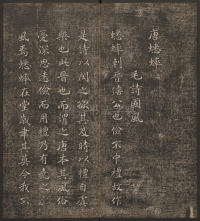 唐蟋蟀
毛詩國風
蟋蟀刺晉僖公也儉不中禮故作
是詩以閔之欲其及時以禮自虞
樂也此晉也而謂之唐本其風俗
憂深思遠儉而用禮乃有堯之遺
風焉蟋蟀在堂歲聿其莫今我不